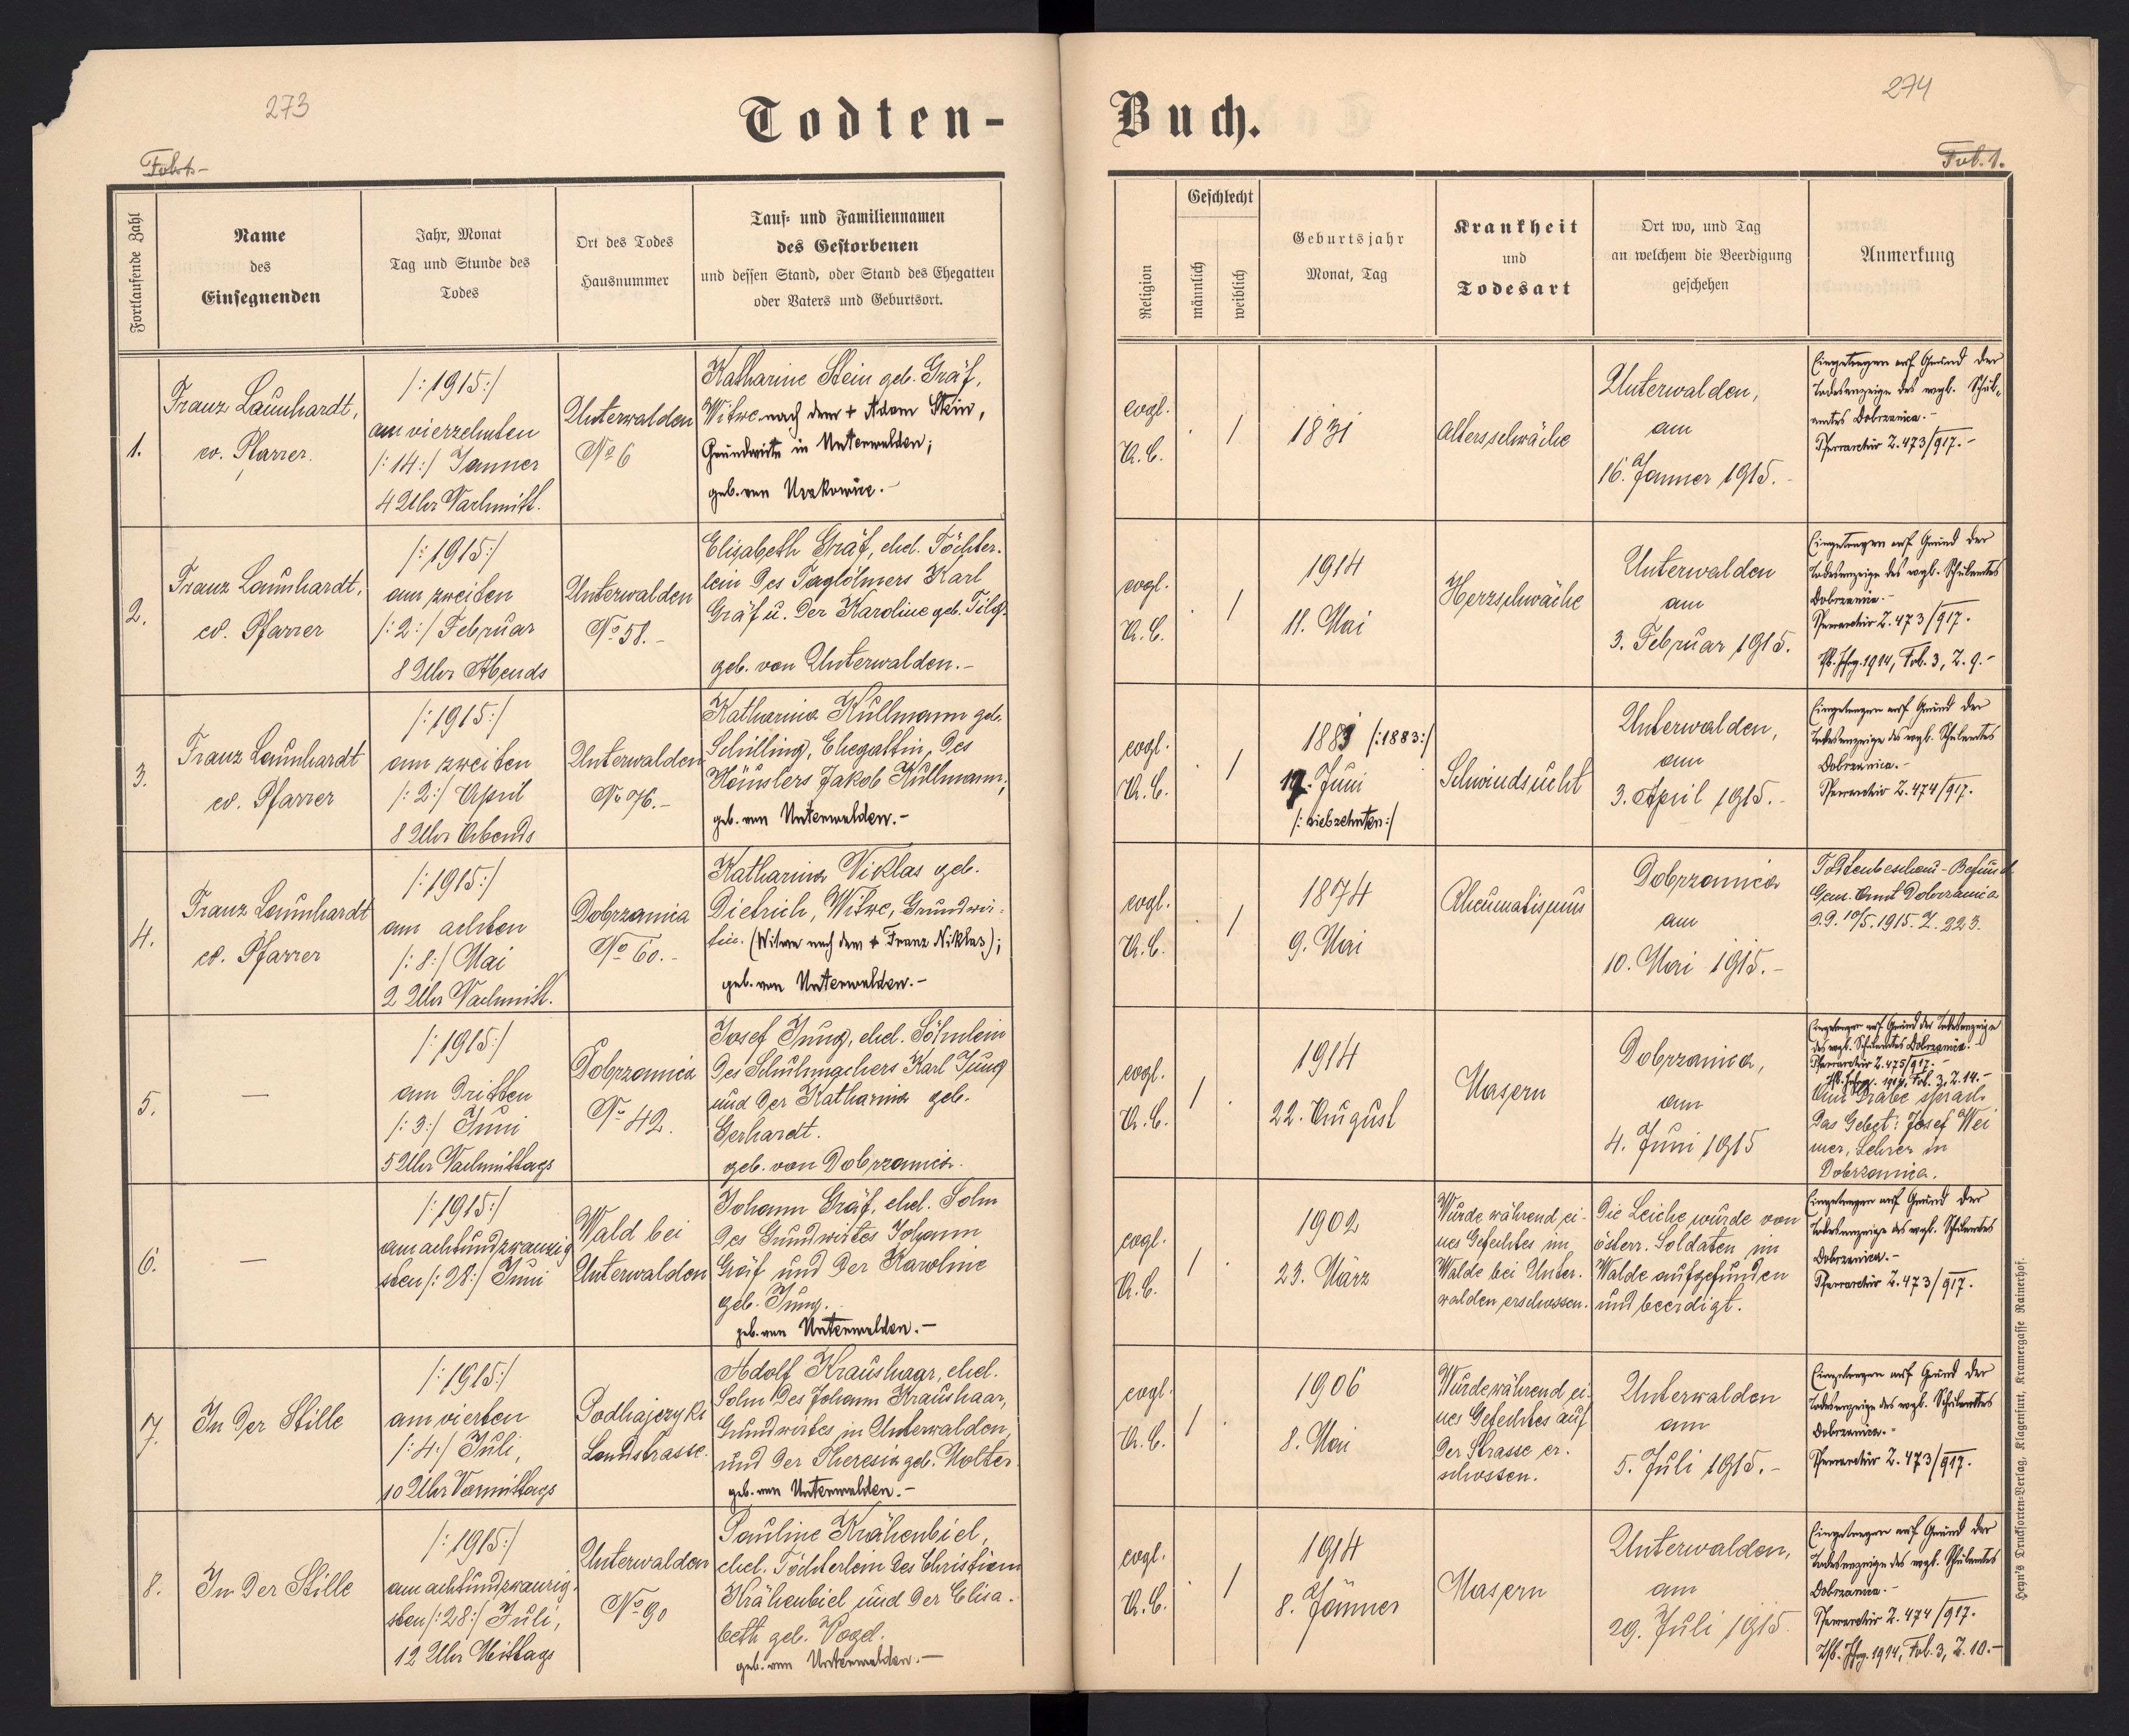 273
Todten-
Fortlaufende Zahl
Name
des
Einsegnenden
Jahr, Monat
Tag und Stunde des
Todes
Ort des Todes
Hausnummer
Tauf- und Familiennamen
des Gestorbenen
und dessen Stand, oder Stand des Ehegatten
oder Vaters und Geburtsort.
1.
Franz Launhardt,
ev. Pfarrer.
/:1915:/
am vierzehnten
/:14:/ Janner
4 Uhr Nachmitt.
Unterwalden
No 6
Katharine Stein geb. Gräf,
Witwe nach dem + Adam Stein,
Grundwirte in Unterwalden;
geb. von
2.
Franz Launhardt,
ev. Pfarrer
/:1915:/
am zweiten
/:2:/ Februar
8 Uhr Abends
Unterwalden
No 58.-
Elisabeth Gräf, ehel. Töchter-
lein des Taglöhners Karl
Gräf u. der Karoline geb. Tilg.
geb. von Unterwalden.-
3.
Franz Launhardt
ev. Pfarrer
/:1915:/
am zweiten
/:2:/ April
8 Uhr Abends
Unterwalden
No 76.-
Katharina Kullmann geb.
Schilling, Ehegattin des
Häuslers Jakob Kullmann;
geb. von Unterwalden.-
4.
Franz Launhardt
ev. Pfarrer
/:1915:/
am achten
/:8:/ Mai
2 Uhr Nachmitt.
Dobrzanica
No 60.-
Katharina Niklas geb.
Dietrich, Witwe, Grundwir-
tin. (Witwe nach dem + Franz Niklas);
geb. von Unterwalden.-
5.
—
/:1915:/
am dritten
/:3:/ Juni
5 Uhr Nachmittags
Dobrzanica
No 42.
Josef Jung, ehel. Söhnlein
des Schuhmachers Karl Jung
und der Katharina geb.
Gerhardt.
geb. von Dobrzanica.
6.
—
/:1915:/
am achtundzwanzig
sten /:28:/ Juni
Wald bei
Unterwalden
Johann Gräf, ehel. Sohn
des Grundwirtes Johann
Gräf und der Karoline
geb. Jung.
geb. von Unterwalden.-
7.
In der Stille
/:1915:/
am vierten
/:4:/ Juli,
10 Uhr Vormittags
Podhajczyki
Landstrasse.
Adolf Kraushaar, ehel.
Sohn des Johann Kraushaar,
Grundwirtes in Unterwalden,
und der Theresia geb. Molter.
geb. von Unterwalden.-
8.
In der Stille
/:1915:/
am achtundzwanzig-
sten /:28:/ Juli,
12 Uhr Mittags
Unterwalden
No 90
Pauline Krähenbiel,
ehel. Töchterlein des Christian
Krähenbiel und der Elisa-
beth geb. Vogel.
geb. von Unterwalden.-
274
Buch.
Fol. 1.
Religion
Geschlecht
männlich
weiblich
Geburtsjahr
Monat, Tag
Krankheit
und
Todesart
Ort wo, und Tag
an welchem die Beerdigung
geschehen
Anmerkung
evgl.
A.C.
. /
1831
Altersschwäche
Unterwalden,
am
16. Janner 1915.-
Eingetragen auf Grund der
Todesanzeige des evgl. Schul-
amtes Dobrzanica.-
Pfarrarchiv Z. 473/917.-
evgl.
A.C.
. /
1914
11. Mai
Herzschwäche
Unterwalden
am
3. Februar 1915.
Eingetragen auf Grund der
Todesanzeige des evgl. Schulamtes
Dobrzanica.-
Pfarrarchiv Z. 473/917.
Jhrg. 1914, Fol. 3, Z. 9.-
evgl.
A.C.
. /
1883 /:1883:/
17. Juni
/:siebzehnten:/
Schwindsucht
Unterwalden,
am
3. April 1915.-
Eingetragen auf Grund der
Todesanzeige des evgl. Schulamtes
Dobrzanica.-
Pfarrarchiv Z. 474/917.
evgl.
A.C.
. /
1874
9. Mai
Rheumatismus
Dobrzanica
am
10. Mai 1915.-
Todtenbeschau-Befund
Gem. Amt Dobrzanica
10/5.1915. Z. 223.
evgl.
A.C.
/ .
1914
22. August
Masern
Dobrzanica,
am
4. Juni 1915
Eingetragen auf Grund der Todesanzeige
des evgl. Schulamtes Dobrzanica.-
Pfarrarchiv Z. 475/917.
Jhrg. 1914, Fol. 3, Z. 14.-
Am Grabe sprach
das Gebet: Josef Wei
mer, Lehrer in
Dobrzanica.
evgl.
A.C.
/ .
1902
23. März
Wurde während ei-
nes Gefechtes im
Walde bei Unter-
walden erschossen.
Die Leiche wurde von
österr. Soldaten im
Walde aufgefunden
und beerdigt.
Eingetragen auf Grund der
Todesanzeige des evgl. Schulamtes
Dobrzanica.-
Pfarrarchiv Z. 473/917.
evgl.
A.C.
/ .
1906
8. Mai
Wurde während ei-
nes Gefechtes auf
der Strasse er-
schossen.
Unterwalden
am
5. Juli 1915.-
Eingetragen auf Grund der
Todesanzeige des evgl. Schulamtes
Dobrzanica.-
Pfarrarchiv Z. 473/917.
evgl.
A.C.
. /
1914
8. Jänner
Masern
Unterwalden,
am
29. Juli 1915.
Eingetragen auf Grund der
Todesanzeige des evgl. Schulamtes
Dobrzanica.-
Pfarrarchiv Z. 474/917.
Jhrg. 1914, Fol. 3, Z. 10.-
Heyn's Drucksorten-Verlag, Klagenfurt, Kramergasse Rainerhof.